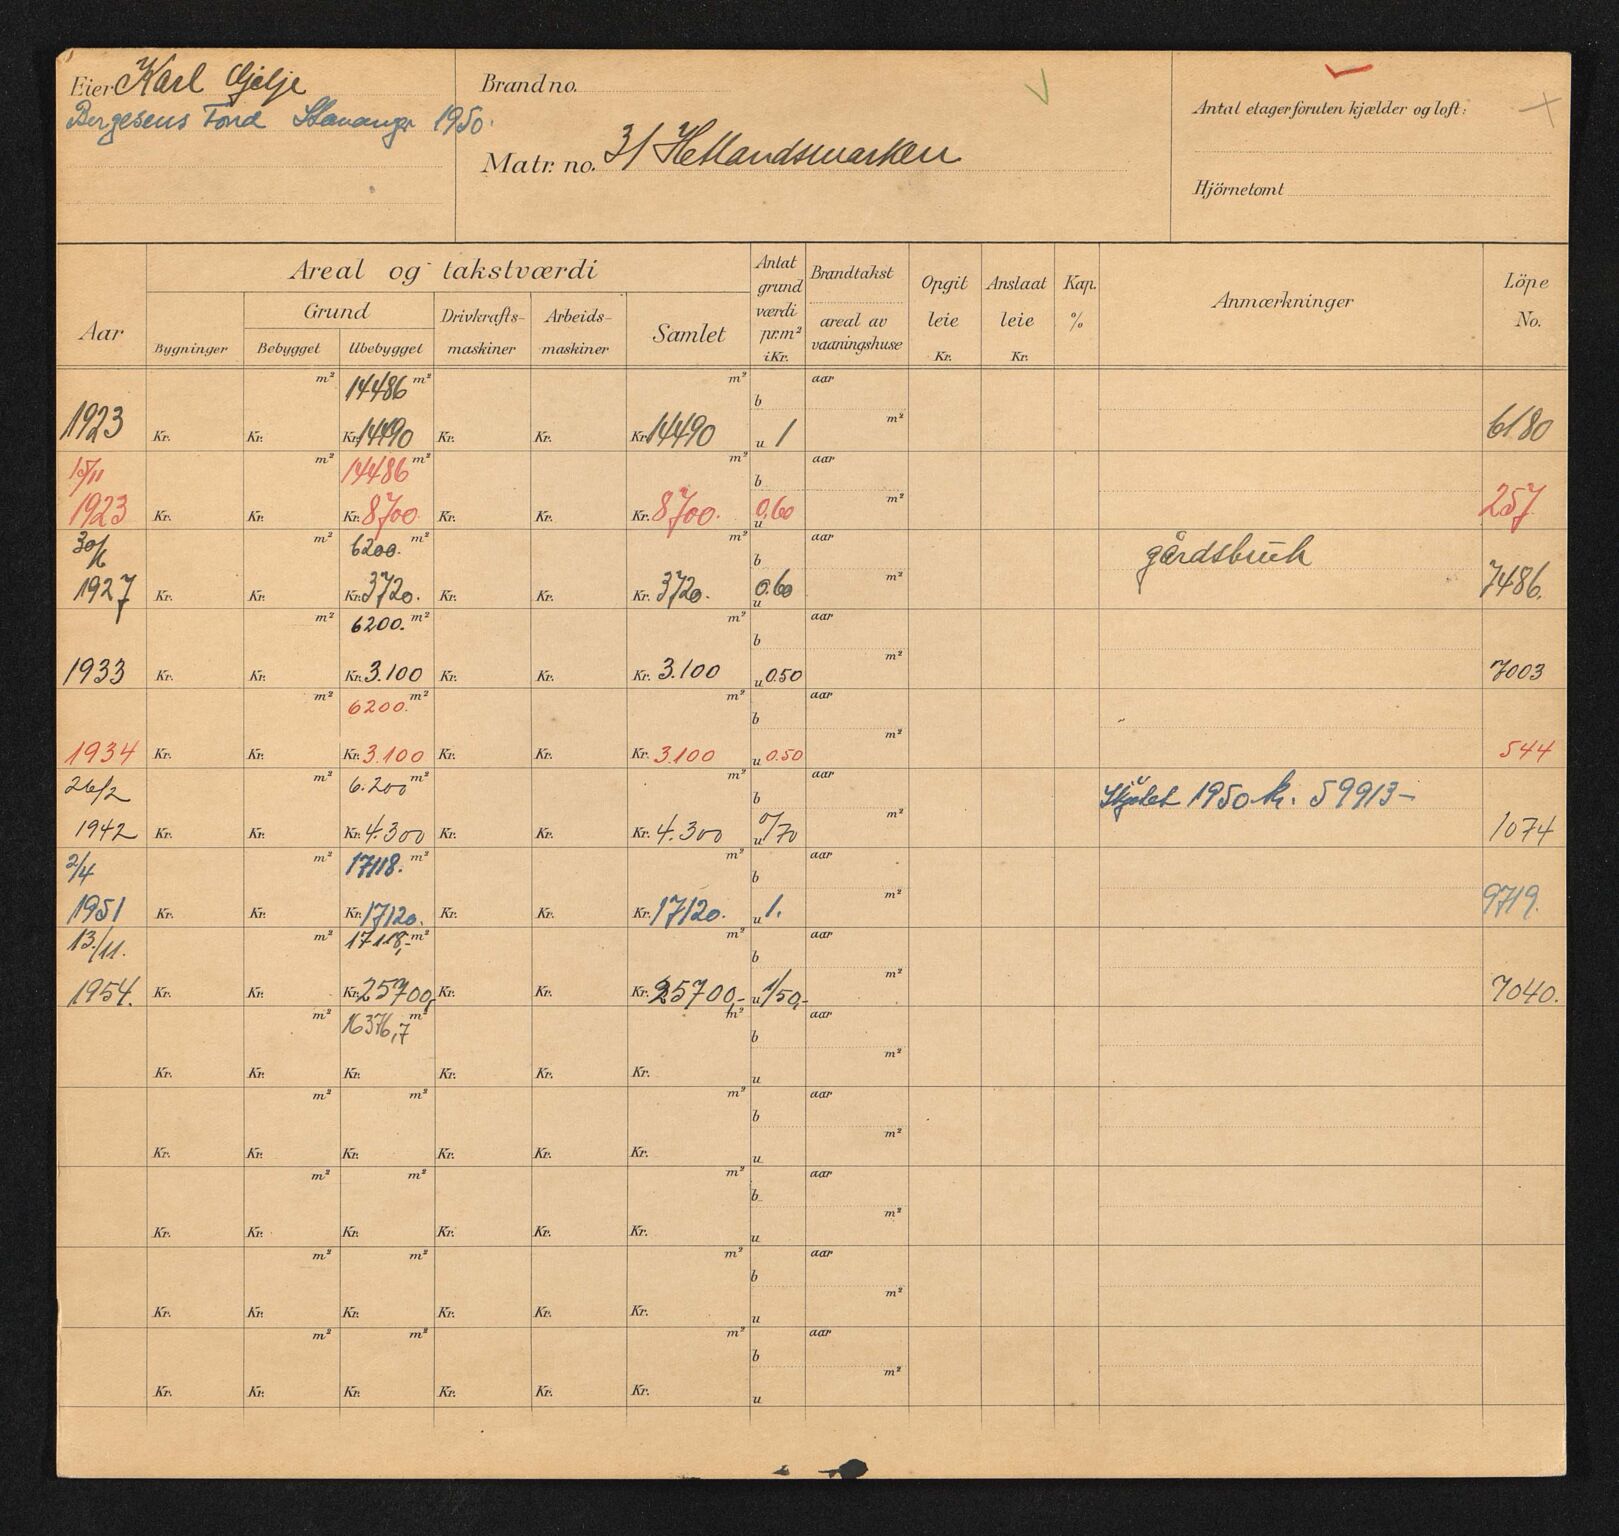 Eier Karl Gjelje
Bergesens Fond Stavanger 1950.
Brand no.
Matr. no. 3/ Hetlandsmarken
Antal etager foruten kjælder og loft:
Hjörnetomt
Aar
Areal og takstværdi
Grund
Bygninger Bebygget Ubebygget
Drivkrafts-maskiner
Arbeids-maskiner
Samlet
Antat grund værdi pr. m² i Kr.
Brandtakst
areal av vaaningshuse
Opgit leie Kr.
Anslaat leie Kr.
Kap. %
Anmærkninger
Löpe No.
m² 14486 m² m² b aar
1923 Kr. Kr. Kr. 14490 Kr. Kr. Kr. 14490 u 1 m² 6180
15/11 m² 14486 m² m² b aar
1923 Kr. Kr. Kr. 8700. Kr. Kr. Kr. 8700. u 0.60 m² 257
30/6 m² 6200. m² m² b aar gårdsbruk
1927 Kr. Kr. Kr. 3720. Kr. Kr. Kr. 3720. u 0.60 m² 7486.
m² 6200. m² m² b aar
1933 Kr. Kr. Kr. 3.100 Kr. Kr. Kr. 3.100 u 0.50 m² 7003
m² 6200. m² m² b aar
1934 Kr. Kr. Kr. 3.100 Kr. Kr. Kr. 3.100 u 0.50 m² 544
26/2 m² 6.200 m² m² b aar Skjötet 1950 kr. 59913-
1942 Kr. Kr. Kr. 4.300 Kr. Kr. Kr. 4.300 u 0/70 m² 1074
2/4 m² 17118. m² m² b aar
1951 Kr. Kr. Kr. 17120. Kr. Kr. Kr. 17120. u 1. m² 9719.
13./11. m² 17118,- m² m² b aar
1954. Kr. Kr. Kr. 25700,- Kr. Kr. Kr. 25700,- u 1/50,- m² 7040.
m² 16376,7 m² m² b aar
Kr. Kr. Kr. Kr. Kr. Kr. u m²
m² m² m² b aar
Kr. Kr. Kr. Kr. Kr. Kr. u m²
m² m² m² b aar
Kr. Kr. Kr. Kr. Kr. Kr. u m²
m² m² m² b aar
Kr. Kr. Kr. Kr. Kr. Kr. u m²
m² m² m² b aar
Kr. Kr. Kr. Kr. Kr. Kr. u m²